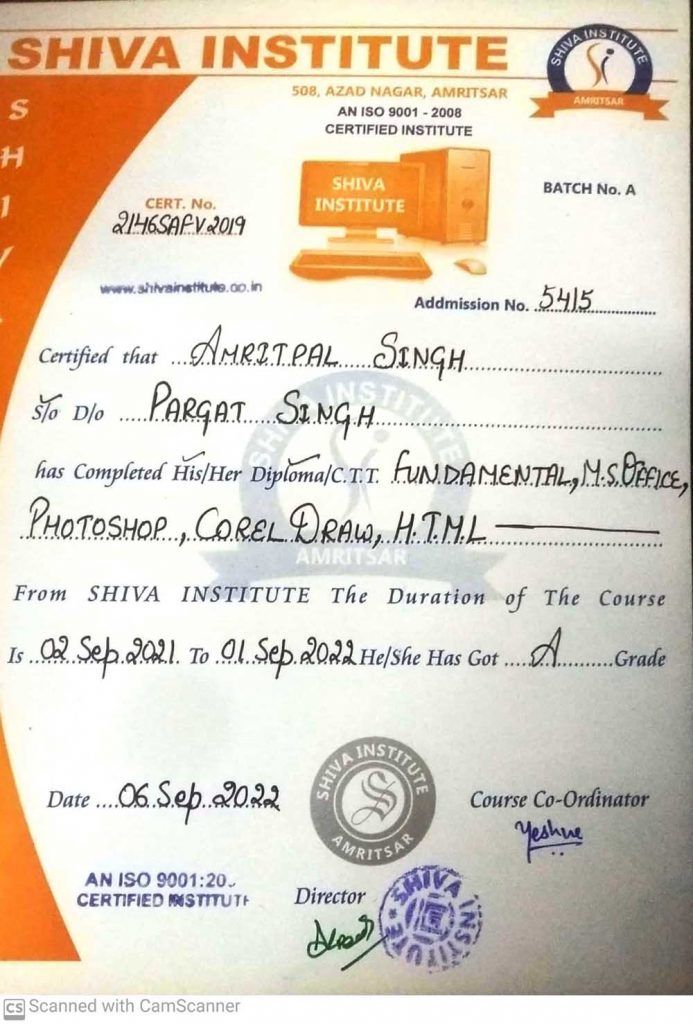 SHIVA INSTITUTE
SHIVA INSTITUTE
AMRITSAR
508, AZAD NAGAR, AMRITSAR
AN ISO 9001 - 2008
CERTIFIED INSTITUTE
S
H
I
V
SHIVA
INSTITUTE
BATCH No. A
CERT. No.
2146SAFV2019
www.shivainstitute.co.in
Addmission No. 5415
Certified that AMRITPAL SINGH
S/o D/o PARGAT SINGH
has Completed His/Her Diploma/C.T.T. FUNDAMENTAL, M.S. OFFICE,
PHOTOSHOP, COREL DRAW, H.T.M.L
INSTITUTE
AMRITSAR
From SHIVA INSTITUTE The Duration of The Course
Is 02 Sep. 2021. To 01 Sep. 2022 He/She Has Got A Grade
SHIVA INSTITUTE
AMRITSAR
Date 06 Sep. 2022
Course Co-Ordinator
Yeshve
AN ISO 9001:20
CERTIFIED INSTITUTE
Director
SHIVA INSTITUTE
CS Scanned with CamScanner